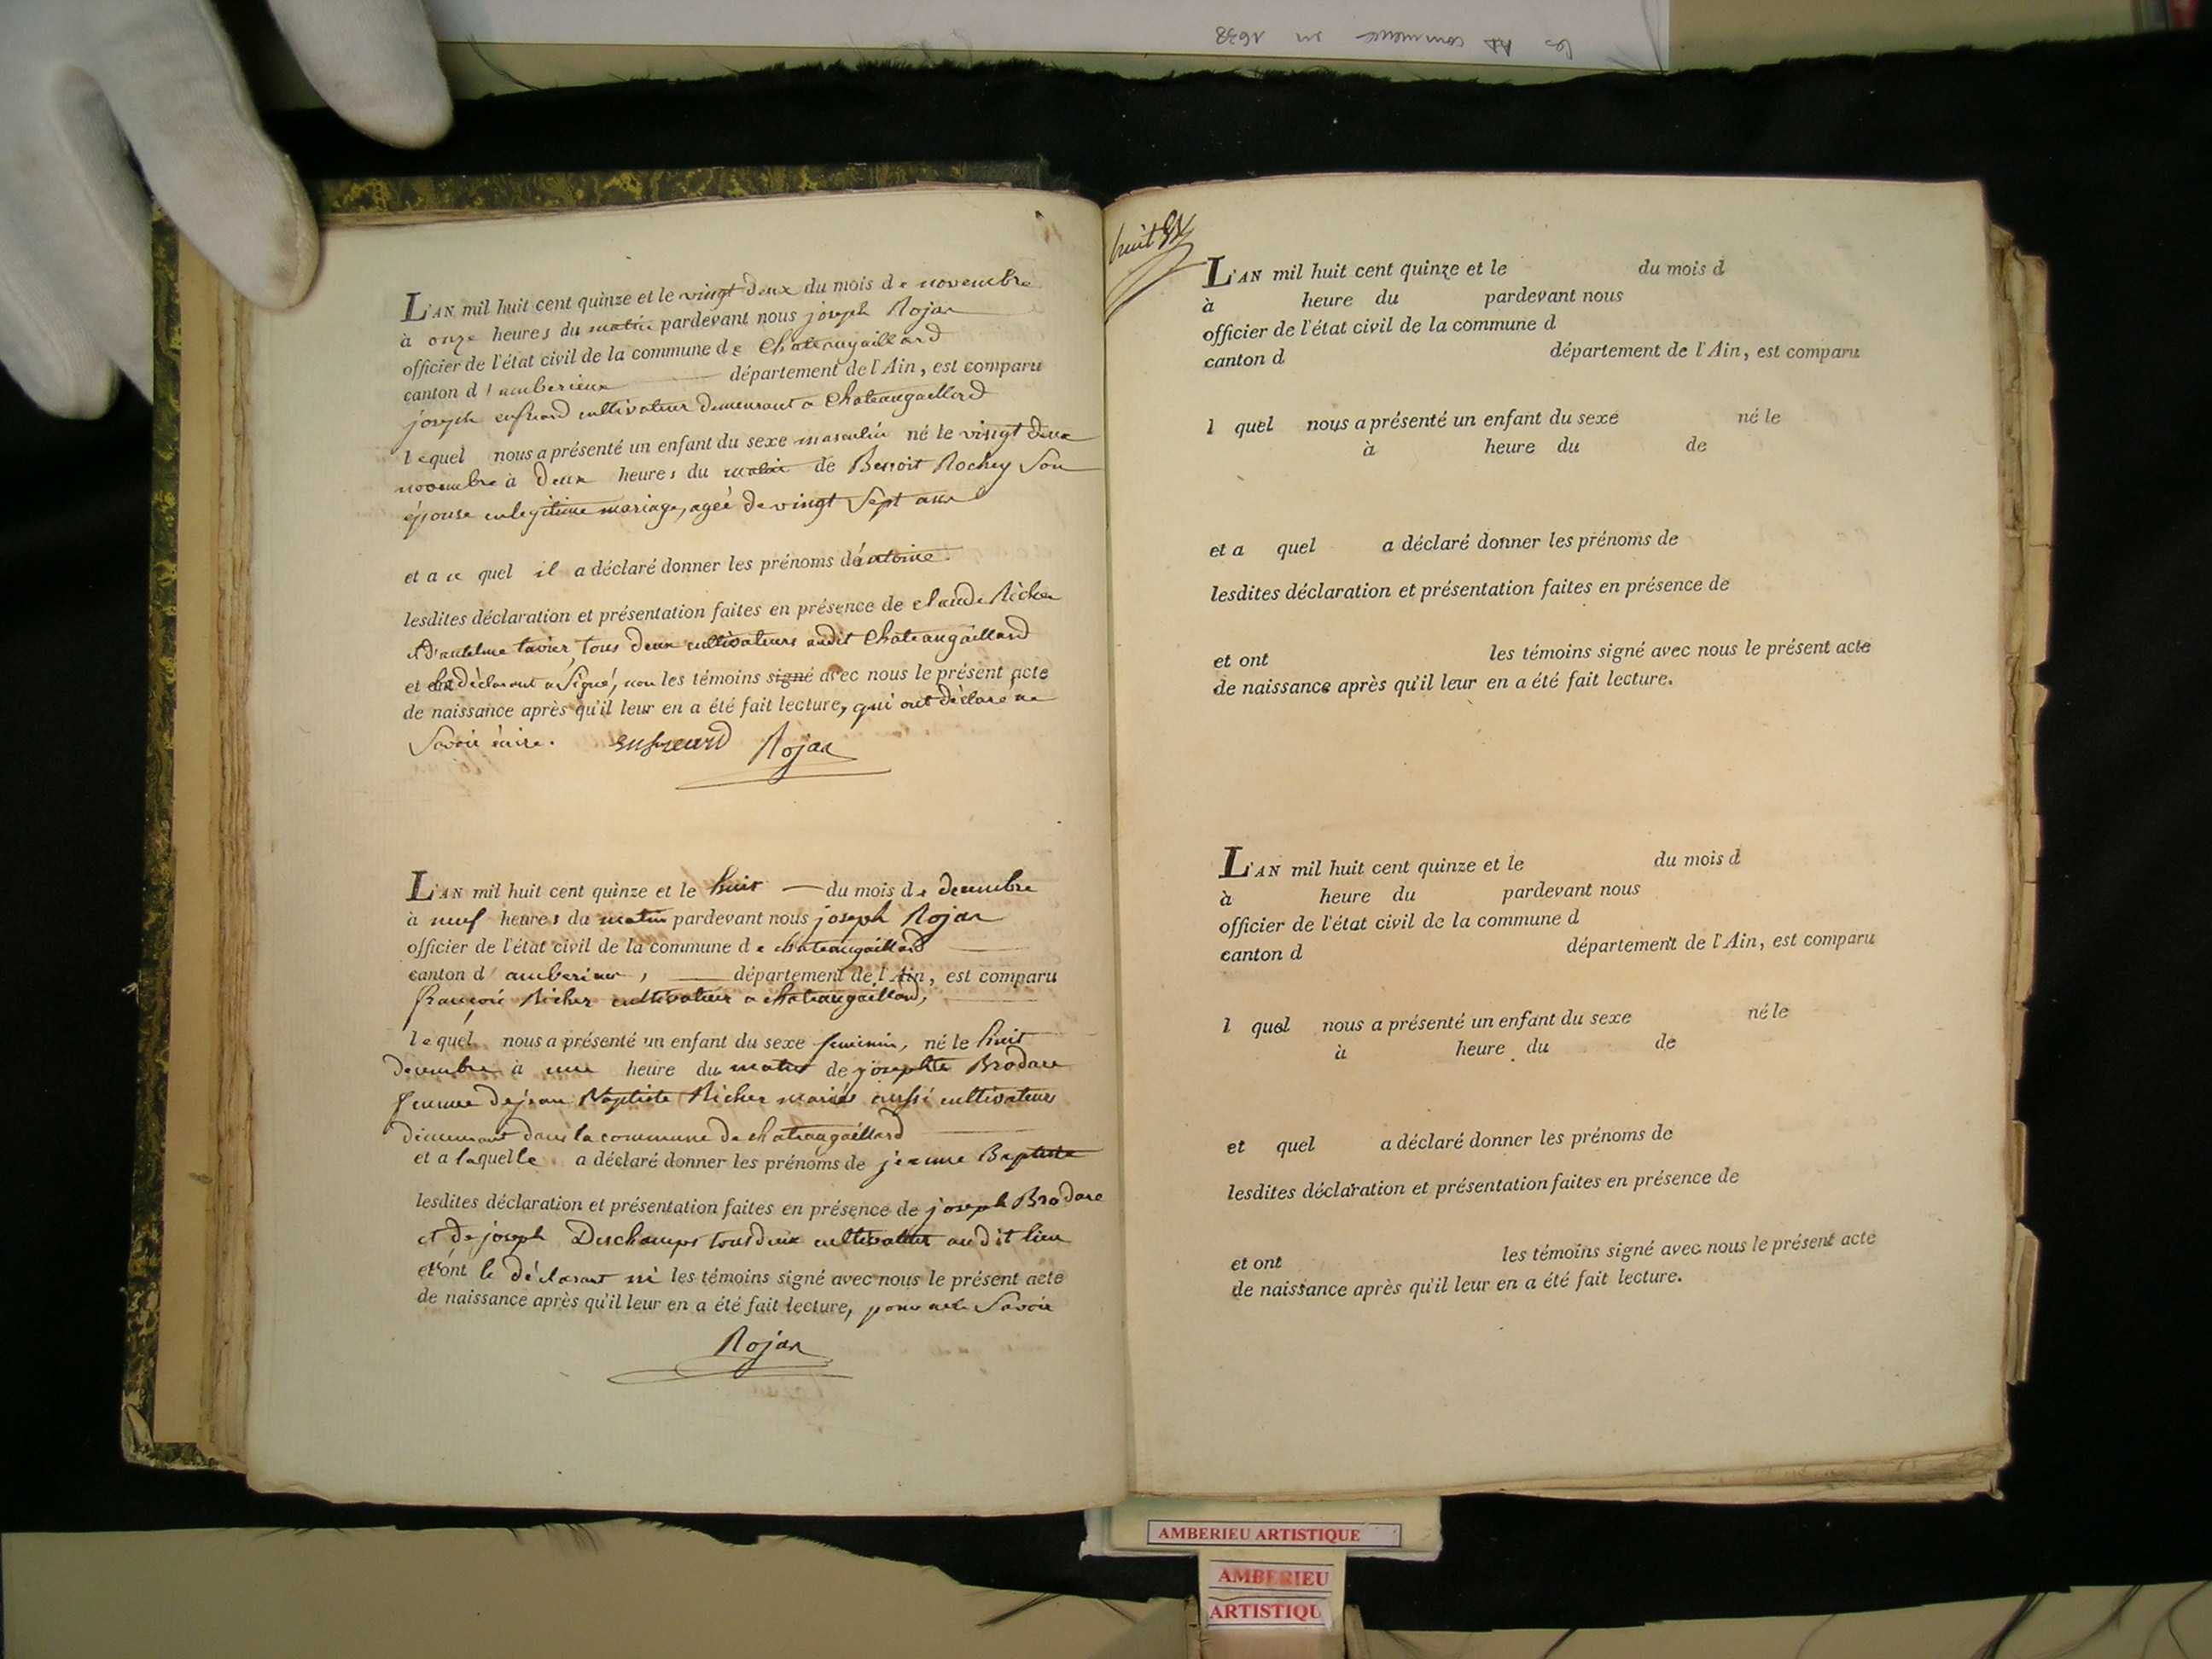 les AD commence en 1638
L'AN mil huit cent quinze et le vingt deux du mois de novembre
à onze heures du matin pardevant nous joseph Rojan
officier de l'état civil de la commune de Chateaugaillard
canton d'amberieux département de l'Ain, est comparu
joseph cultivateur demeurant a Chateaugaillard
lequel nous a présenté un enfant du sexe masculin né le vingt deux
novembre à deux heures du matin de Benoit Rochey Son
épouse en legitime mariage, ageé de vingt Sept ans
et a ce quel il a déclaré donner les prénoms d'antoine
lesdites déclaration et présentation faites en présence de claude Richer
et d'antelme tavier, tous deux cultivateurs audit Chateaugaillard
et déclarant a Signé, non les témoins signé avec nous le présent acte
de naissance après qu'il leur en a été fait lecture, qui ont déclaré ne
Savoir écrire. Rojan
L'AN mil huit cent quinze et le huit du mois de decembre
à neuf heures du matin pardevant nous joseph Rojan
officier de l'état civil de la commune de chateaugaillard
canton d'amberieux, département de l'Ain, est comparu
françois Richer cultivateur a chateaugaillard,
lequel nous a présenté un enfant du sexe feminin, né le huit
decembre à une heure du matin de josephte Brodare
femme de jean Baptiste Richer mariés aussi cultivateurs
demeurant dans la commune de chateaugaillard
et a laquelle a déclaré donner les prénoms de jeanne Baptiste
lesdites déclaration et présentation faites en présence de joseph Brodare
et de joseph Deschamps tous deux cultivateurs audit lieu
et ont le déclarant ni les témoins signé avec nous le présent acte
de naissance après qu'il leur en a été fait lecture, pour ne le Savoir
Rojan
huit
L'AN mil huit cent quinze et le du mois d
à heure du pardevant nous
officier de l'état civil de la commune d
canton d département de l'Ain, est comparu
l quel nous a présenté un enfant du sexe né le
à heure du de
et a quel a déclaré donner les prénoms de
lesdites déclaration et présentation faites en présence de
et ont les témoins signé avec nous le présent acte
de naissance après qu'il leur en a été fait lecture.
L'AN mil huit cent quinze et le du mois d
à heure du pardevant nous
officier de l'état civil de la commune d
canton d département de l'Ain, est comparu
l quel nous a présenté un enfant du sexe né le
à heure du de
et quel a déclaré donner les prénoms de
lesdites déclaration et présentation faites en présence de
et ont les témoins signé avec nous le présent acte
de naissance après qu'il leur en a été fait lecture.
AMBERIEU ARTISTIQUE
AMBERIEU
ARTISTIQU